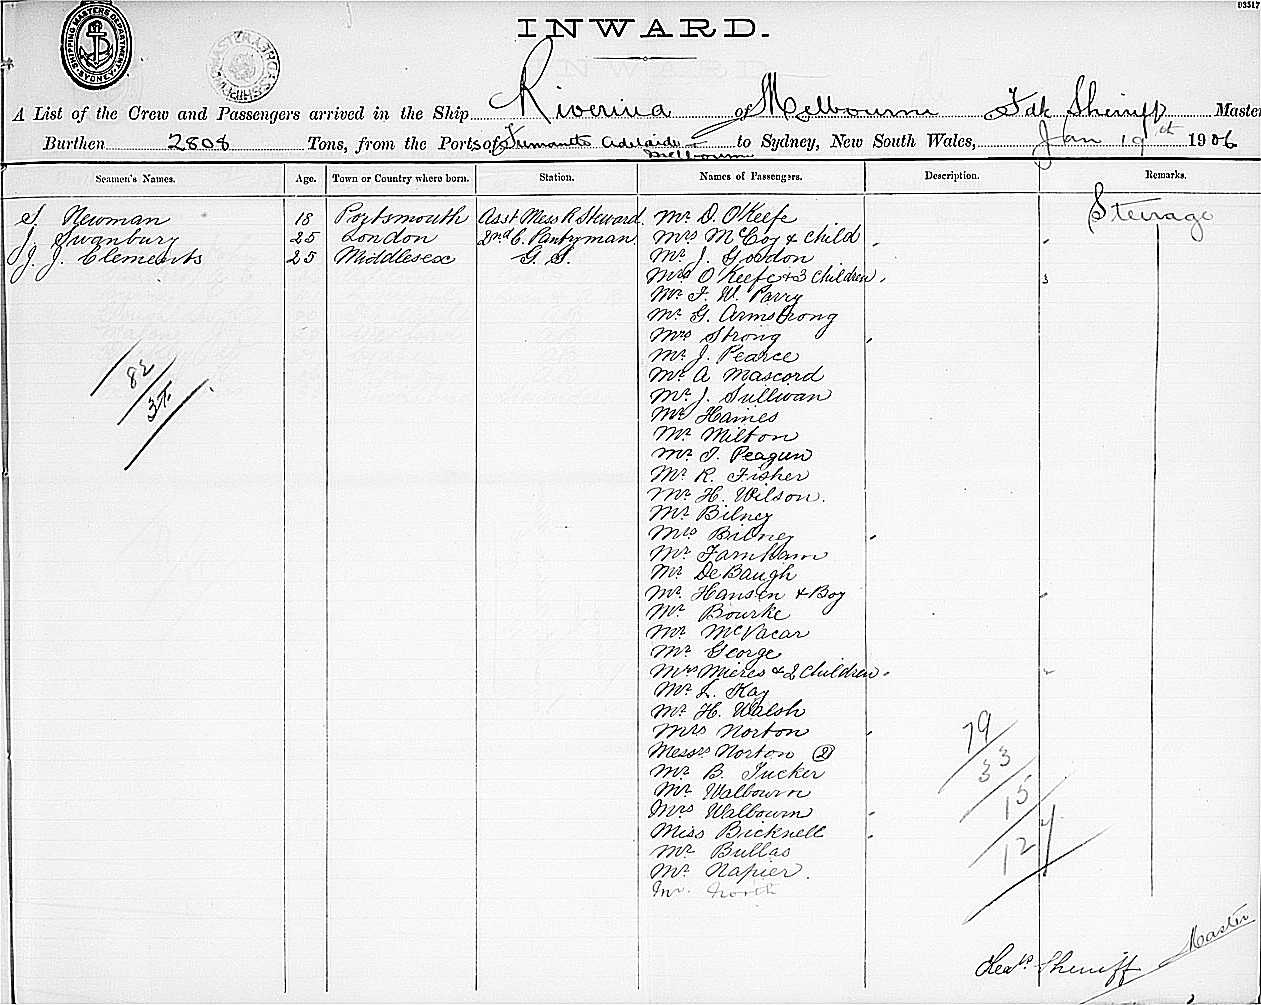 03517
INWARD.
SHIPPING MASTERS DEPARTMENT SYDNEY
A List of the Crew and Passengers arrived in the Ship Riverina of Melbourne Fdk Sherriff Master
Burthen 2808 Tons, from the Ports of Fremantle Adelaide & Melbourne to Sydney, New South Wales, Jan 19th 1906
Seamen's Names. Age. Town or Country where born. Station. Names of Passengers. Description. Remarks.
S Newman 18 Portsmouth Asst Mess R Steward Mr D. O'Keefe Steerage
J Swanbury 25 London 2nd C. Pantryman Mrs McCoy & child
J. J. Clements 25 Middlesex G. S. Mr J. Gordon
Mrs O'Keefe & 3 children 3
Mr F. W. Parry
Mr G. Armstrong
Mrs Strong
Mr J. Pearce
Mr A Mascord
Mr J. Sullivan
Mr Haines
Mr Milton
Mr J. Peagun
Mr R. Fisher
Mr H. Wilson.
Mr Bilney
Mrs Bilney
Mr Farnham
Mr DeBaugh
Mr Hansen & Boy
Mr Bourke
Mr McVacar
Mr George
Mrs Mieres & 2 children
Mr L. Kay
Mr H. Walsh
Mrs Norton
Messrs Norton (2)
Mr B. Tucker
Mr Walbourn
Mrs Walbourn
Miss Bicknell
Mr Bullas
Mr Napier.
Mr. North
82
37
79
33
15
127
Fredk Sherriff Master